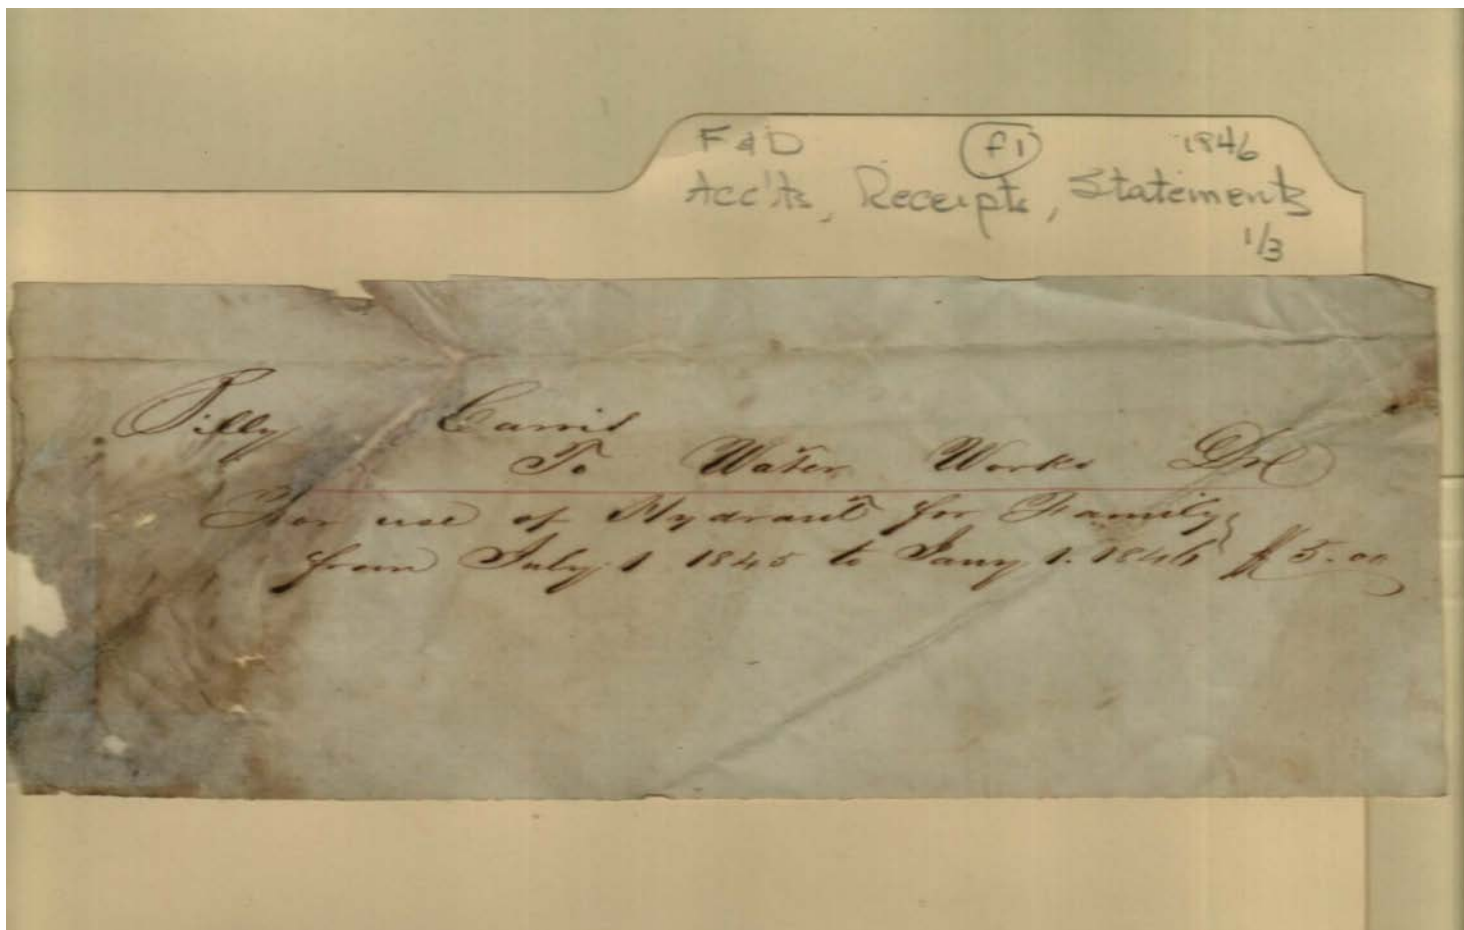 F & D f1 1846
Acc'ts, Receipts, Statements
1/3
To Water Works Dr
For use of Hydrant for Family
from July 1 1845 to Jany 1. 1846 $5.00